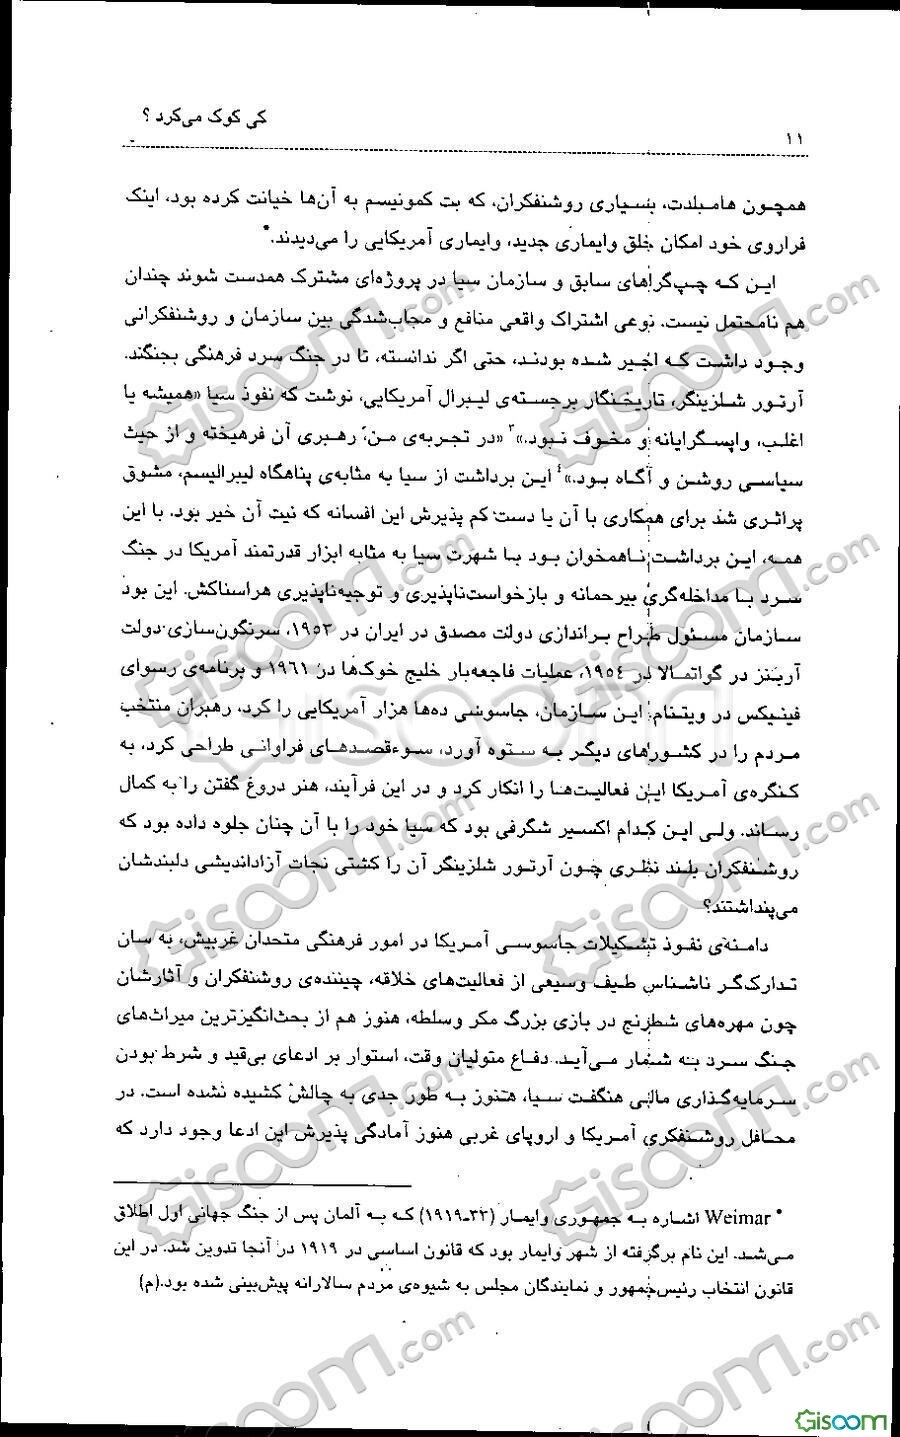 کی کوک می‌کرد ؟
۱۱
همچون هامبلدت، بسیاری روشنفکران، که بت کمونیسم به آن‌ها خیانت کرده بود، اینک
فراروی خود امکان خلق وایماری جدید، وایماری آمریکایی را می‌دیدند.*
این که چپ‌گراهای سابق و سازمان سیا در پروژه‌ای مشترک همدست شوند چندان
هم نامحتمل نیست. نوعی اشتراک واقعی منافع و مجاب‌شدگی بین سازمان و روشنفکرانی
وجود داشت که اجیر شده بودند، حتی اگر ندانسته، تا در جنگ سرد فرهنگی بجنگند.
آرتور شلزینگر، تاریخنگار برجسته‌ی لیبرال آمریکایی، نوشت که نفوذ سیا «همیشه یا
اغلب، واپسگرایانه و مخوف نبود.»۳ «در تجربه‌ی من، رهبری آن فرهیخته و از حیث
سیاسی روشن و آگاه بود.»۴ این برداشت از سیا به مثابه‌ی پناهگاه لیبرالیسم، مشوق
پراثری شد برای همکاری با آن یا دست کم پذیرش این افسانه که نیت آن خیر بود. با این
همه، این برداشت ناهمخوان بود با شهرت سیا به مثابه ابزار قدرتمند آمریکا در جنگ
سرد با مداخله‌گری بیرحمانه و بازخواست‌ناپذیری و توجیه‌ناپذیری هراسناکش. این بود
سازمان مسئول طراح براندازی دولت مصدق در ایران در ۱۹۵۳، سرنگون‌سازی دولت
آربنز در گواتمالا در ۱۹۵۴، عملیات فاجعه‌بار خلیج خوک‌ها در ۱۹۶۱ و برنامه‌ی رسوای
فینیکس در ویتنام. این سازمان، جاسوسی ده‌ها هزار آمریکایی را کرد، رهبران منتخب
مردم را در کشورهای دیگر به ستوه آورد، سوءقصدهای فراوانی طراحی کرد، به
کنگره‌ی آمریکا این فعالیت‌ها را انکار کرد و در این فرآیند، هنر دروغ گفتن را به کمال
رساند. ولی این کدام اکسیر شگرفی بود که سیا خود را با آن چنان جلوه داده بود که
روشنفکران بلند نظری چون آرتور شلزینگر آن را کشتی نجات آزاداندیشی دلبندشان
می‌پنداشتند؟
دامنه‌ی نفوذ تشکیلات جاسوسی آمریکا در امور فرهنگی متحدان غربیش، به سان
تدارک‌گر ناشناس طیف وسیعی از فعالیت‌های خلاقه، چیننده‌ی روشنفکران و آثارشان
چون مهره‌های شطرنج در بازی بزرگ مکر وسلطه، هنوز هم از بحث‌انگیزترین میراث‌های
جنگ سرد به شمار می‌آید. دفاع متولیان وقت، استوار بر ادعای بی‌قید و شرط بودن
سرمایه‌گذاری مالی هنگفت سیا، هنوز به طور جدی به چالش کشیده نشده است. در
محافل روشنفکری آمریکا و اروپای غربی هنوز آمادگی پذیرش این ادعا وجود دارد که
* Weimar اشاره به جمهوری وایمار (۳۳-۱۹۱۹) که به آلمان پس از جنگ جهانی اول اطلاق
می‌شد. این نام برگرفته از شهر وایمار بود که قانون اساسی در ۱۹۱۹ در آنجا تدوین شد. در این
قانون انتخاب رئیس‌جمهور و نمایندگان مجلس به شیوه‌ی مردم سالارانه پیش‌بینی شده بود.(م)
Gisoom